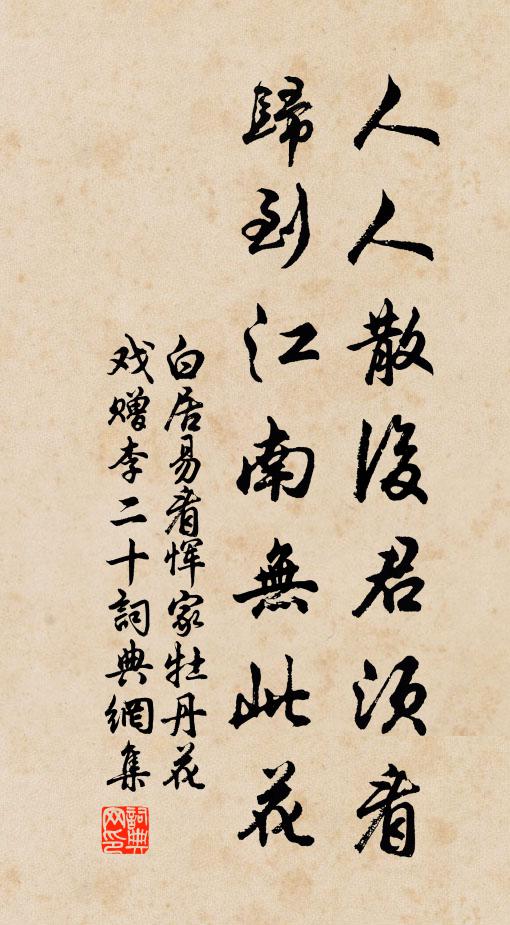 人人散後君須看
歸到江南無此花
白居易看恽家牡丹花
戏赠李二十詞典網集
詞典网印